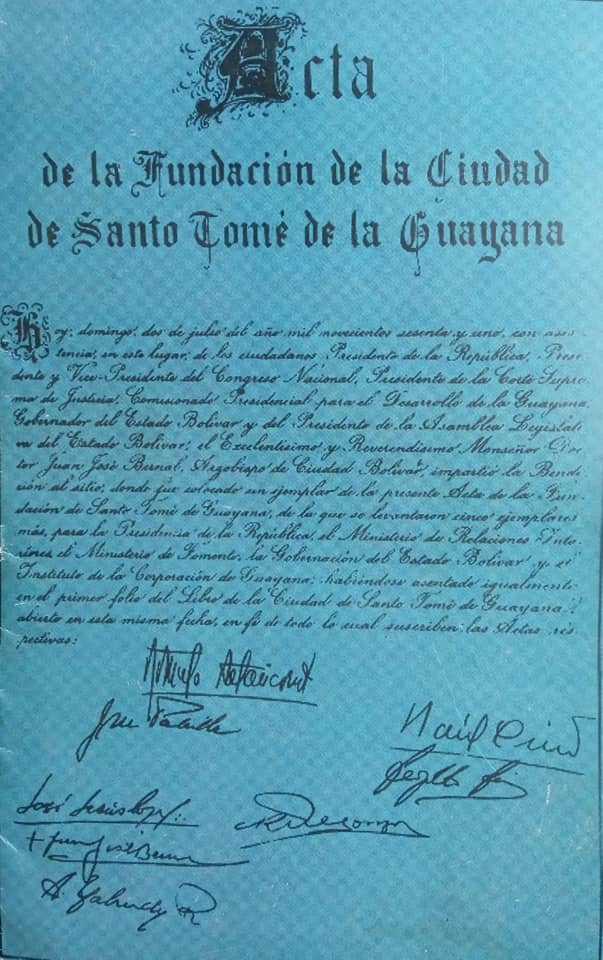 Acta
de la Fundación de la Ciudad
de Santo Tomé de la Guayana
Hoy, domingo, dos de julio del año mil novecientos sesenta y uno, con asis-
tencia, en este lugar, de los ciudadanos Presidente de la República, Presi-
dente y Vice-Presidente del Congreso Nacional, Presidente de la Corte Supre-
ma de Justicia, Comisionado Presidencial para el Desarrollo de la Guayana,
Gobernador del Estado Bolívar y del Presidente de la Asamblea Legislati-
va del Estado Bolívar, el Excelentísimo y Reverendísimo Monseñor Doc-
tor Juan José Bernal, Arzobispo de Ciudad Bolívar, impartió la Bendi-
ción al sitio, donde fue colocado un ejemplar de la presente Acta de la Fun-
dación de Santo Tomé de Guayana, de la que se levantaron cinco ejemplares
más, para la Presidencia de la República, el Ministerio de Relaciones Inte-
riores, el Ministerio de Fomento, la Gobernación del Estado Bolívar y el
Instituto de la Corporación de Guayana; habiéndose asentado igualmente
en el primer folio del Libro de la Ciudad de Santo Tomé de Guayana,
abierto en esta misma fecha, en fé de todo lo cual suscriben las Actas res-
pectivas:
Rómulo Betancourt
José
Raúl
José Jesús López
+ Juan José Bernal
A.